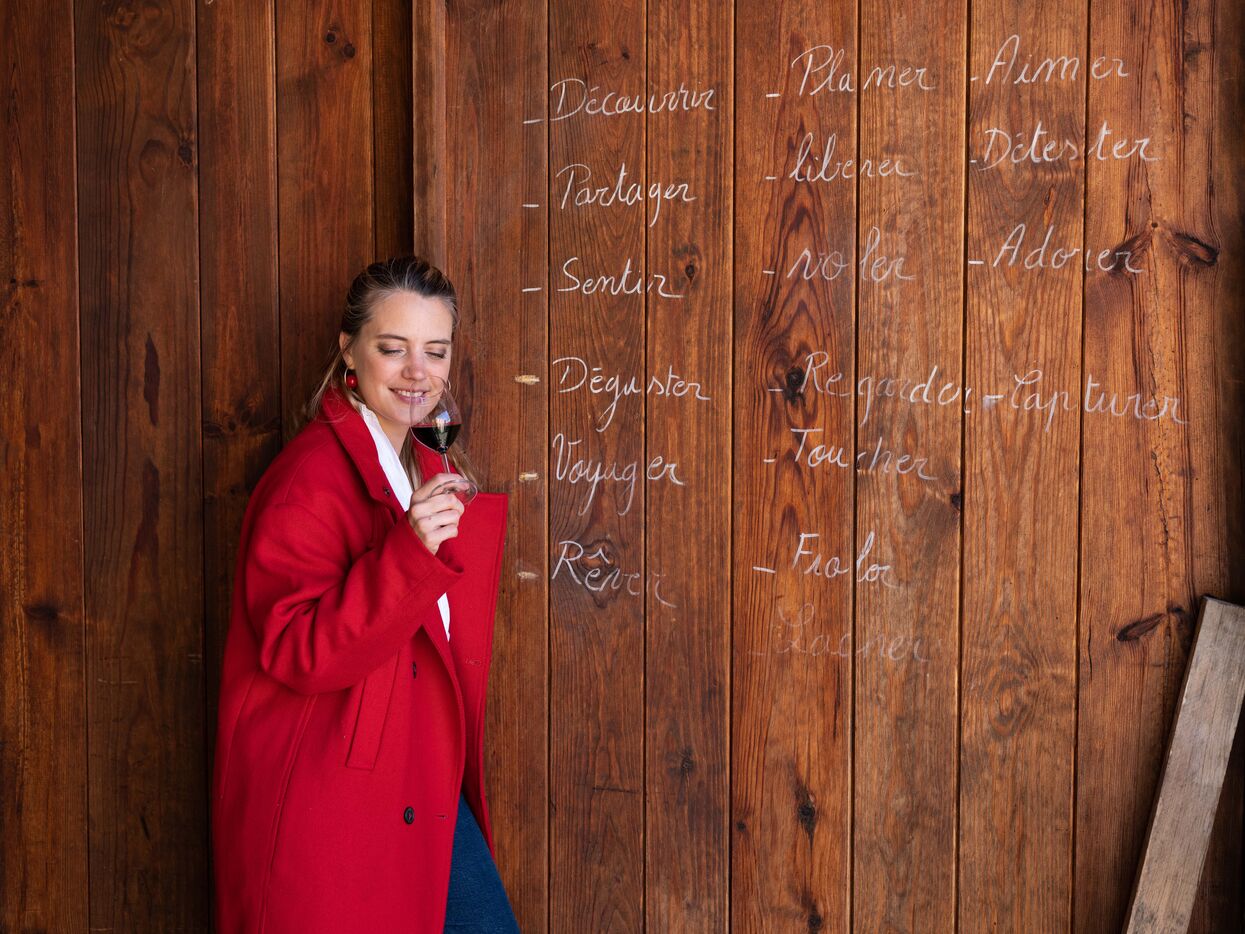 - Découvrir
- Partager
- Sentir
- Déguster
- Voyager
- Rêver
- Planer
- libérer
- voler
- Regarder
- Toucher
- Froler
- Lacher
- Aimer
- Détester
- Adorer
- Capturer